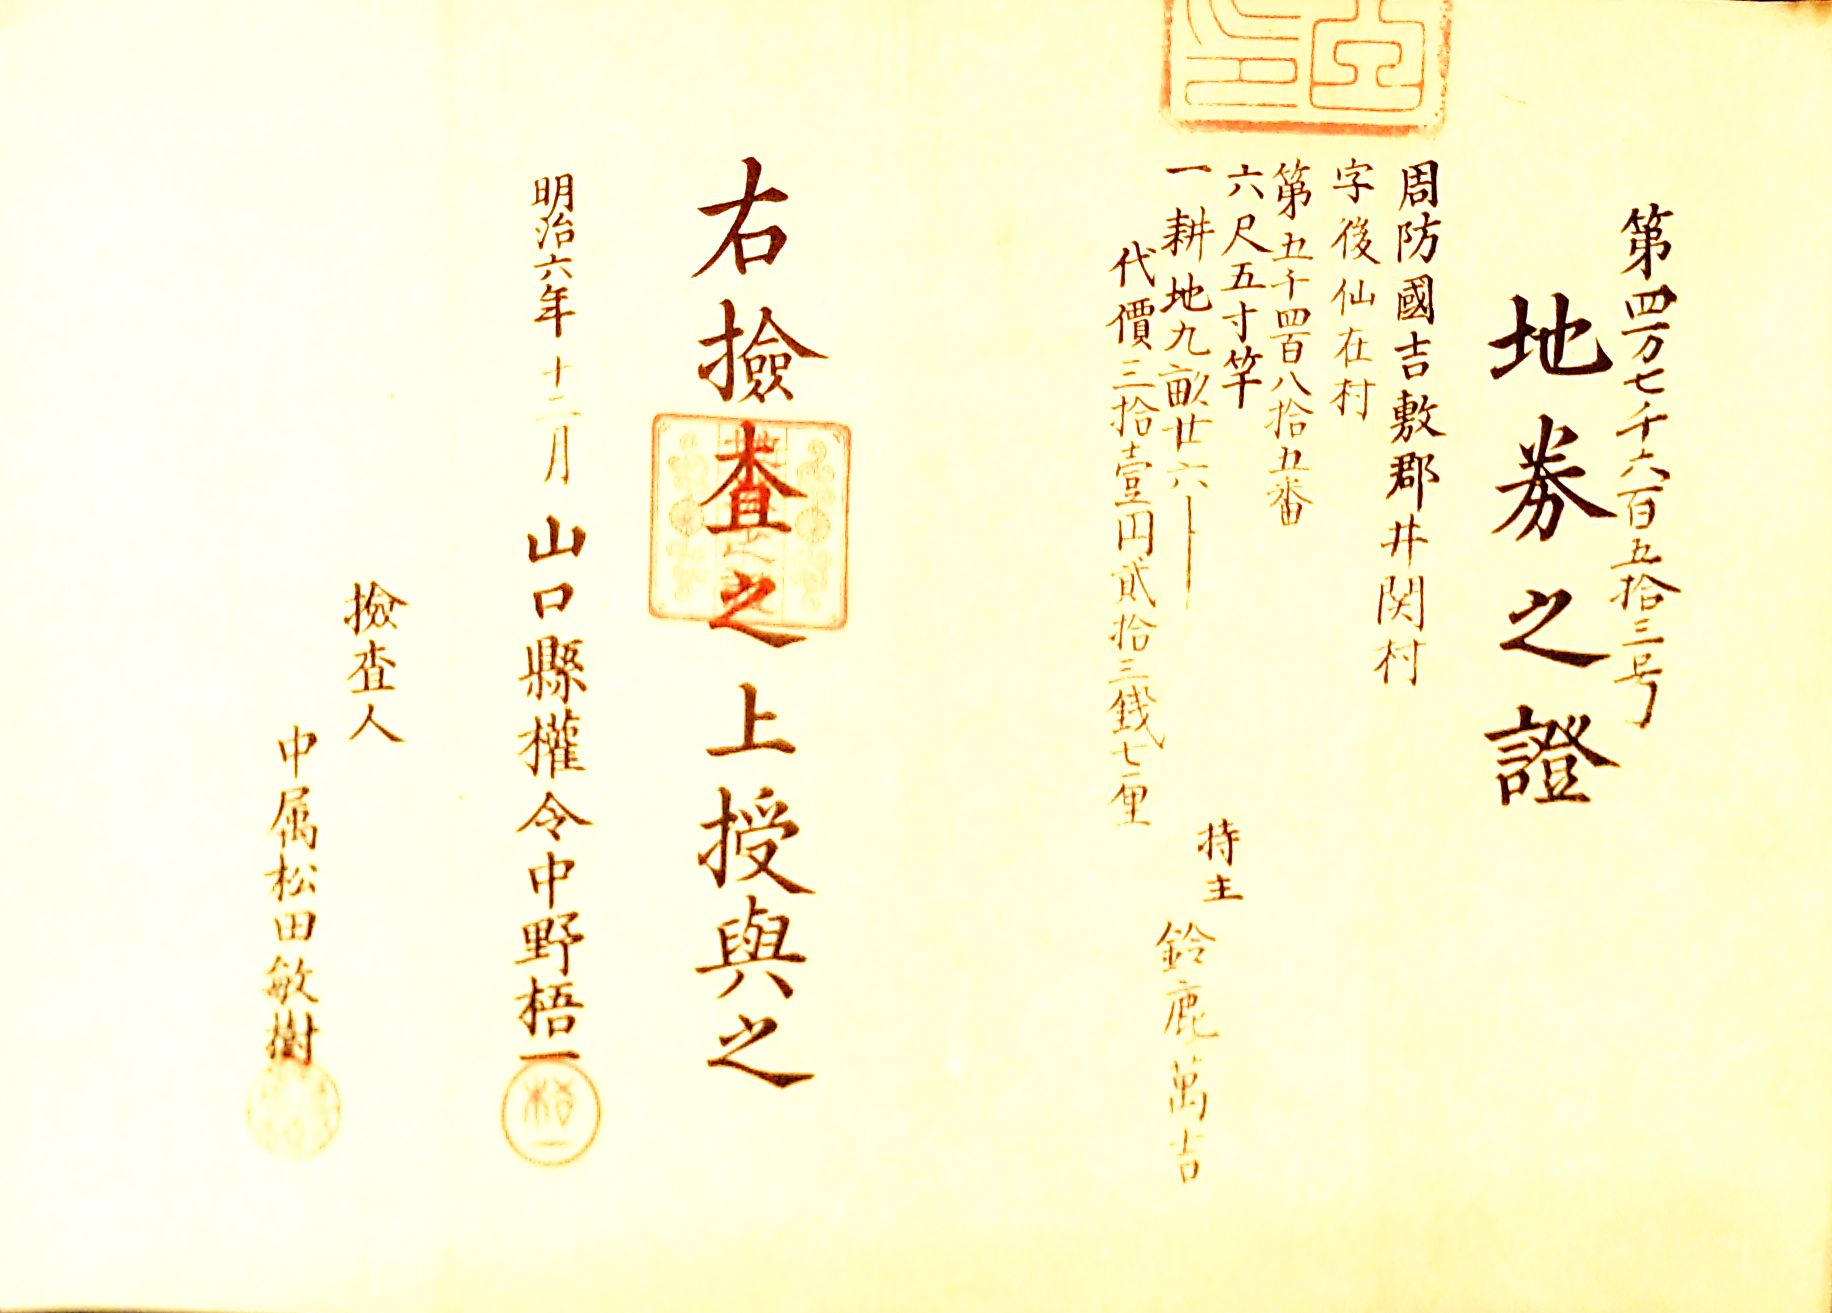 第四万七千六百五拾三号
地券之證
周防國吉敷郡井関村
字後仙在村
第五千四百八拾五番
六尺五寸竿
一耕地九畝廿六
代價三拾壹円貳拾三錢七厘
持主
鈴鹿萬吉
右撿査之上授與之
明治六年十二月 山口縣權令中野梧一
撿査人
中属松田敏樹